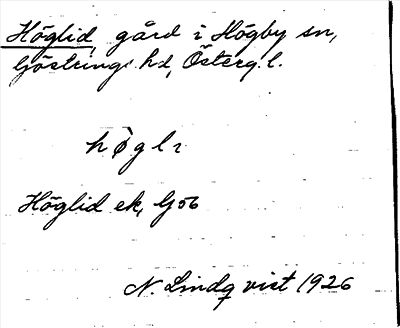 Höglid, gård i Högby sn,
Göstrings hd, Österg.l.
hø̀glı
Höglid ek, G56
N. Lindqvist 1926